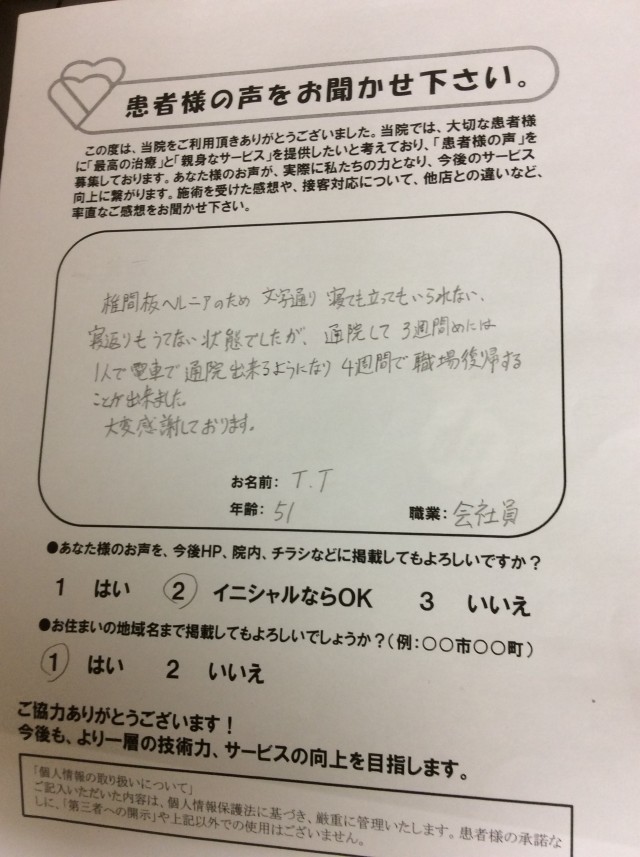 患者様の声をお聞かせ下さい。
この度は、当院をご利用頂きありがとうございました。当院では、大切な患者様
に「最高の治療」と「親身なサービス」を提供したいと考えており、「患者様の声」を
募集しております。あなた様のお声が、実際に私たちの力となり、今後のサービス
向上に繋がります。施術を受けた感想や、接客対応について、他店との違いなど、
率直なご感想をお聞かせ下さい。
椎間板ヘルニアのため 文字通り 寝ても立ってもいられない、
寝返りもうてない状態でしたが、通院して 3週間めには
1人で電車で通院出来るようになり 4週間で職場復帰する
ことが出来ました。
大変感謝しております。
お名前: T.T
年齢: 51 職業: 会社員
●あなた様のお声を、今後HP、院内、チラシなどに掲載してもよろしいですか?
1 はい 2 イニシャルならOK 3 いいえ
●お住まいの地域名まで掲載してもよろしいでしょうか?(例:○○市○○町)
1 はい 2 いいえ
ご協力ありがとうございます!
今後も、より一層の技術力、サービスの向上を目指します。
「個人情報の取り扱いについて」
ご記入いただいた内容は、個人情報保護法に基づき、厳重に管理いたします。患者様の承諾な
しに、「第三者への開示」や上記以外での使用はございません。